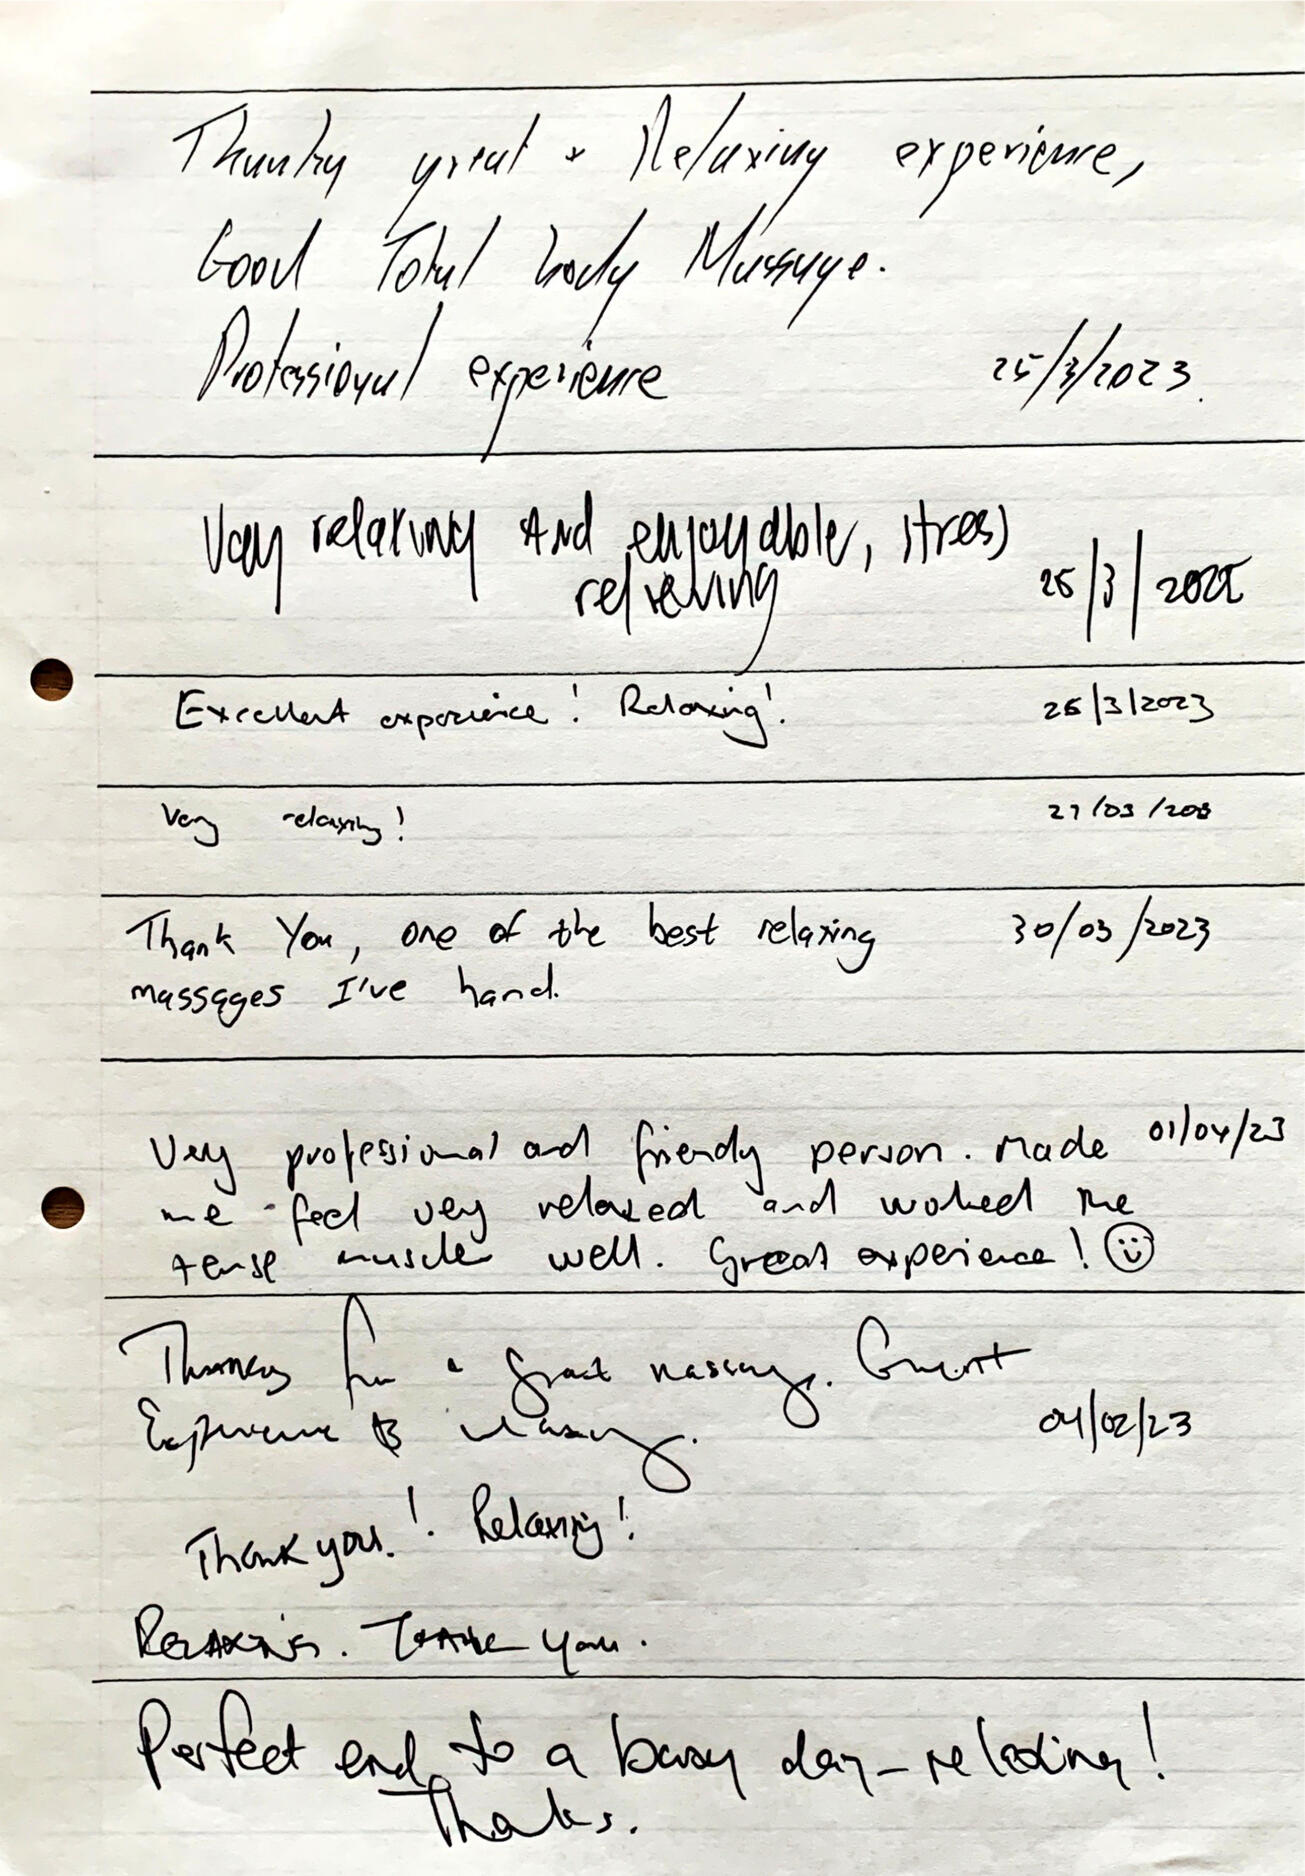 Thanky great + Relaxing experience,
Good Total body Massage.
Professional experience 25/3/2023.
Very relaxing and enjoyable, stress
relieving 25/3/2022
Excellent experience! Relaxing! 26/3/2023
Very relaxing! 27/03/
Thank You, one of the best relaxing 30/03/2023
massages I've hand.
Very professional and friendly person. Made 01/04/23
me feel very relaxed and worked the
tense muscles well. Great experience! ☺
Thanks for a great massage. Great
Experience & relaxing. 04/02/23
Thank you! Relaxing!
RELAXING. THANK you.
Perfect end to a busy day - relaxing!
Thanks.